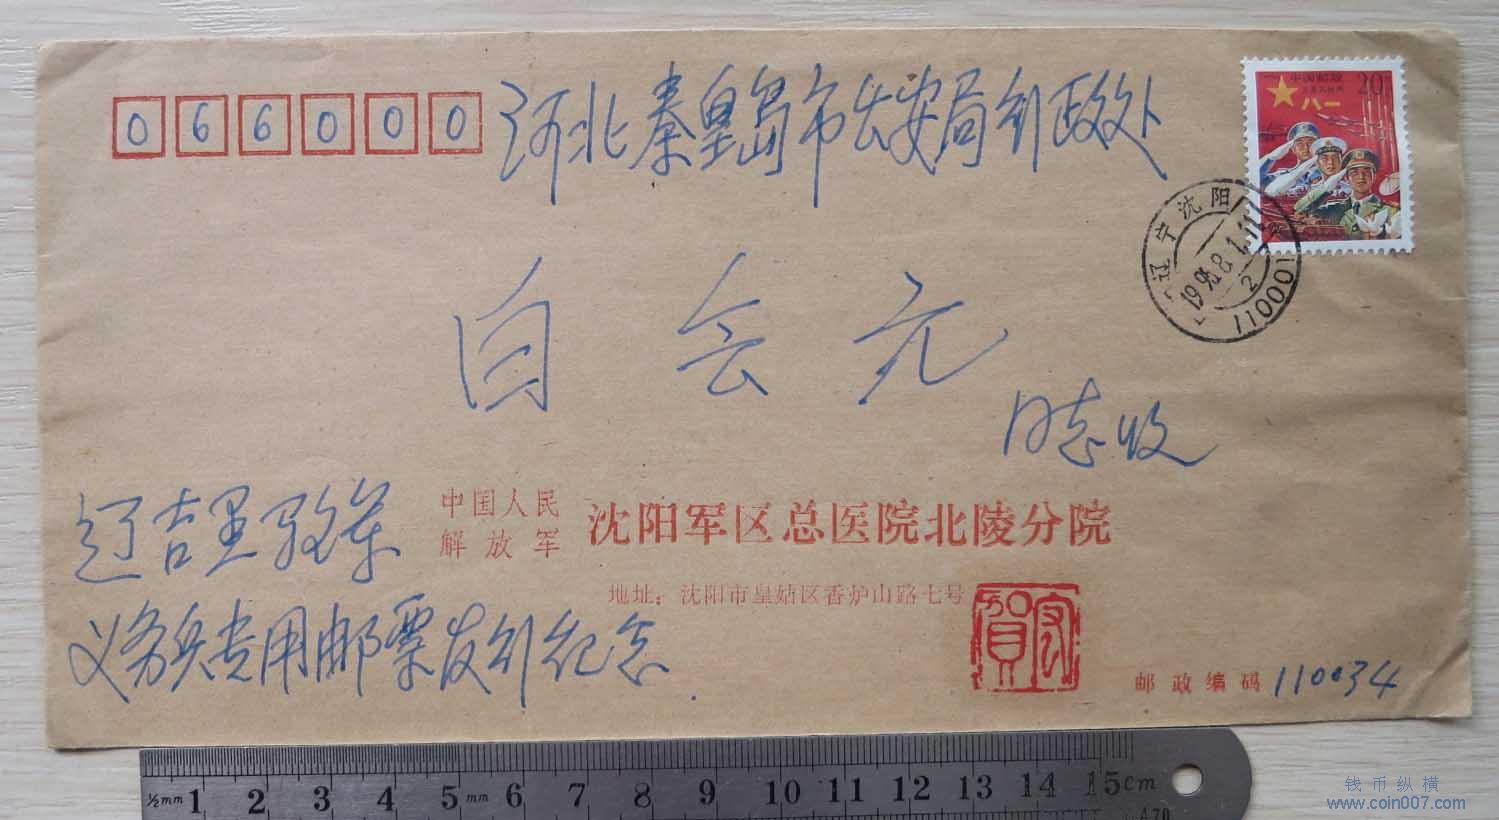 066000
河北秦皇岛市公安局行政处
中国邮政
20
八一
辽宁沈阳
1995.8.1.11
2
110001
白会元
同志收
辽吉黑
义务兵专用邮票发行纪念.
中国人民
解放军
沈阳军区总医院北陵分院
地址：沈阳市皇姑区香炉山路七号
賀
邮政编码 110034
½mm 1 2 3 4 5 mm 6 7 8 9 10 11 12 13 14 15cm
4.70
钱币纵横
www.coin007.com